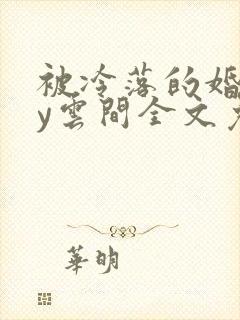 被冷落的婚
y雲間全文免
華明